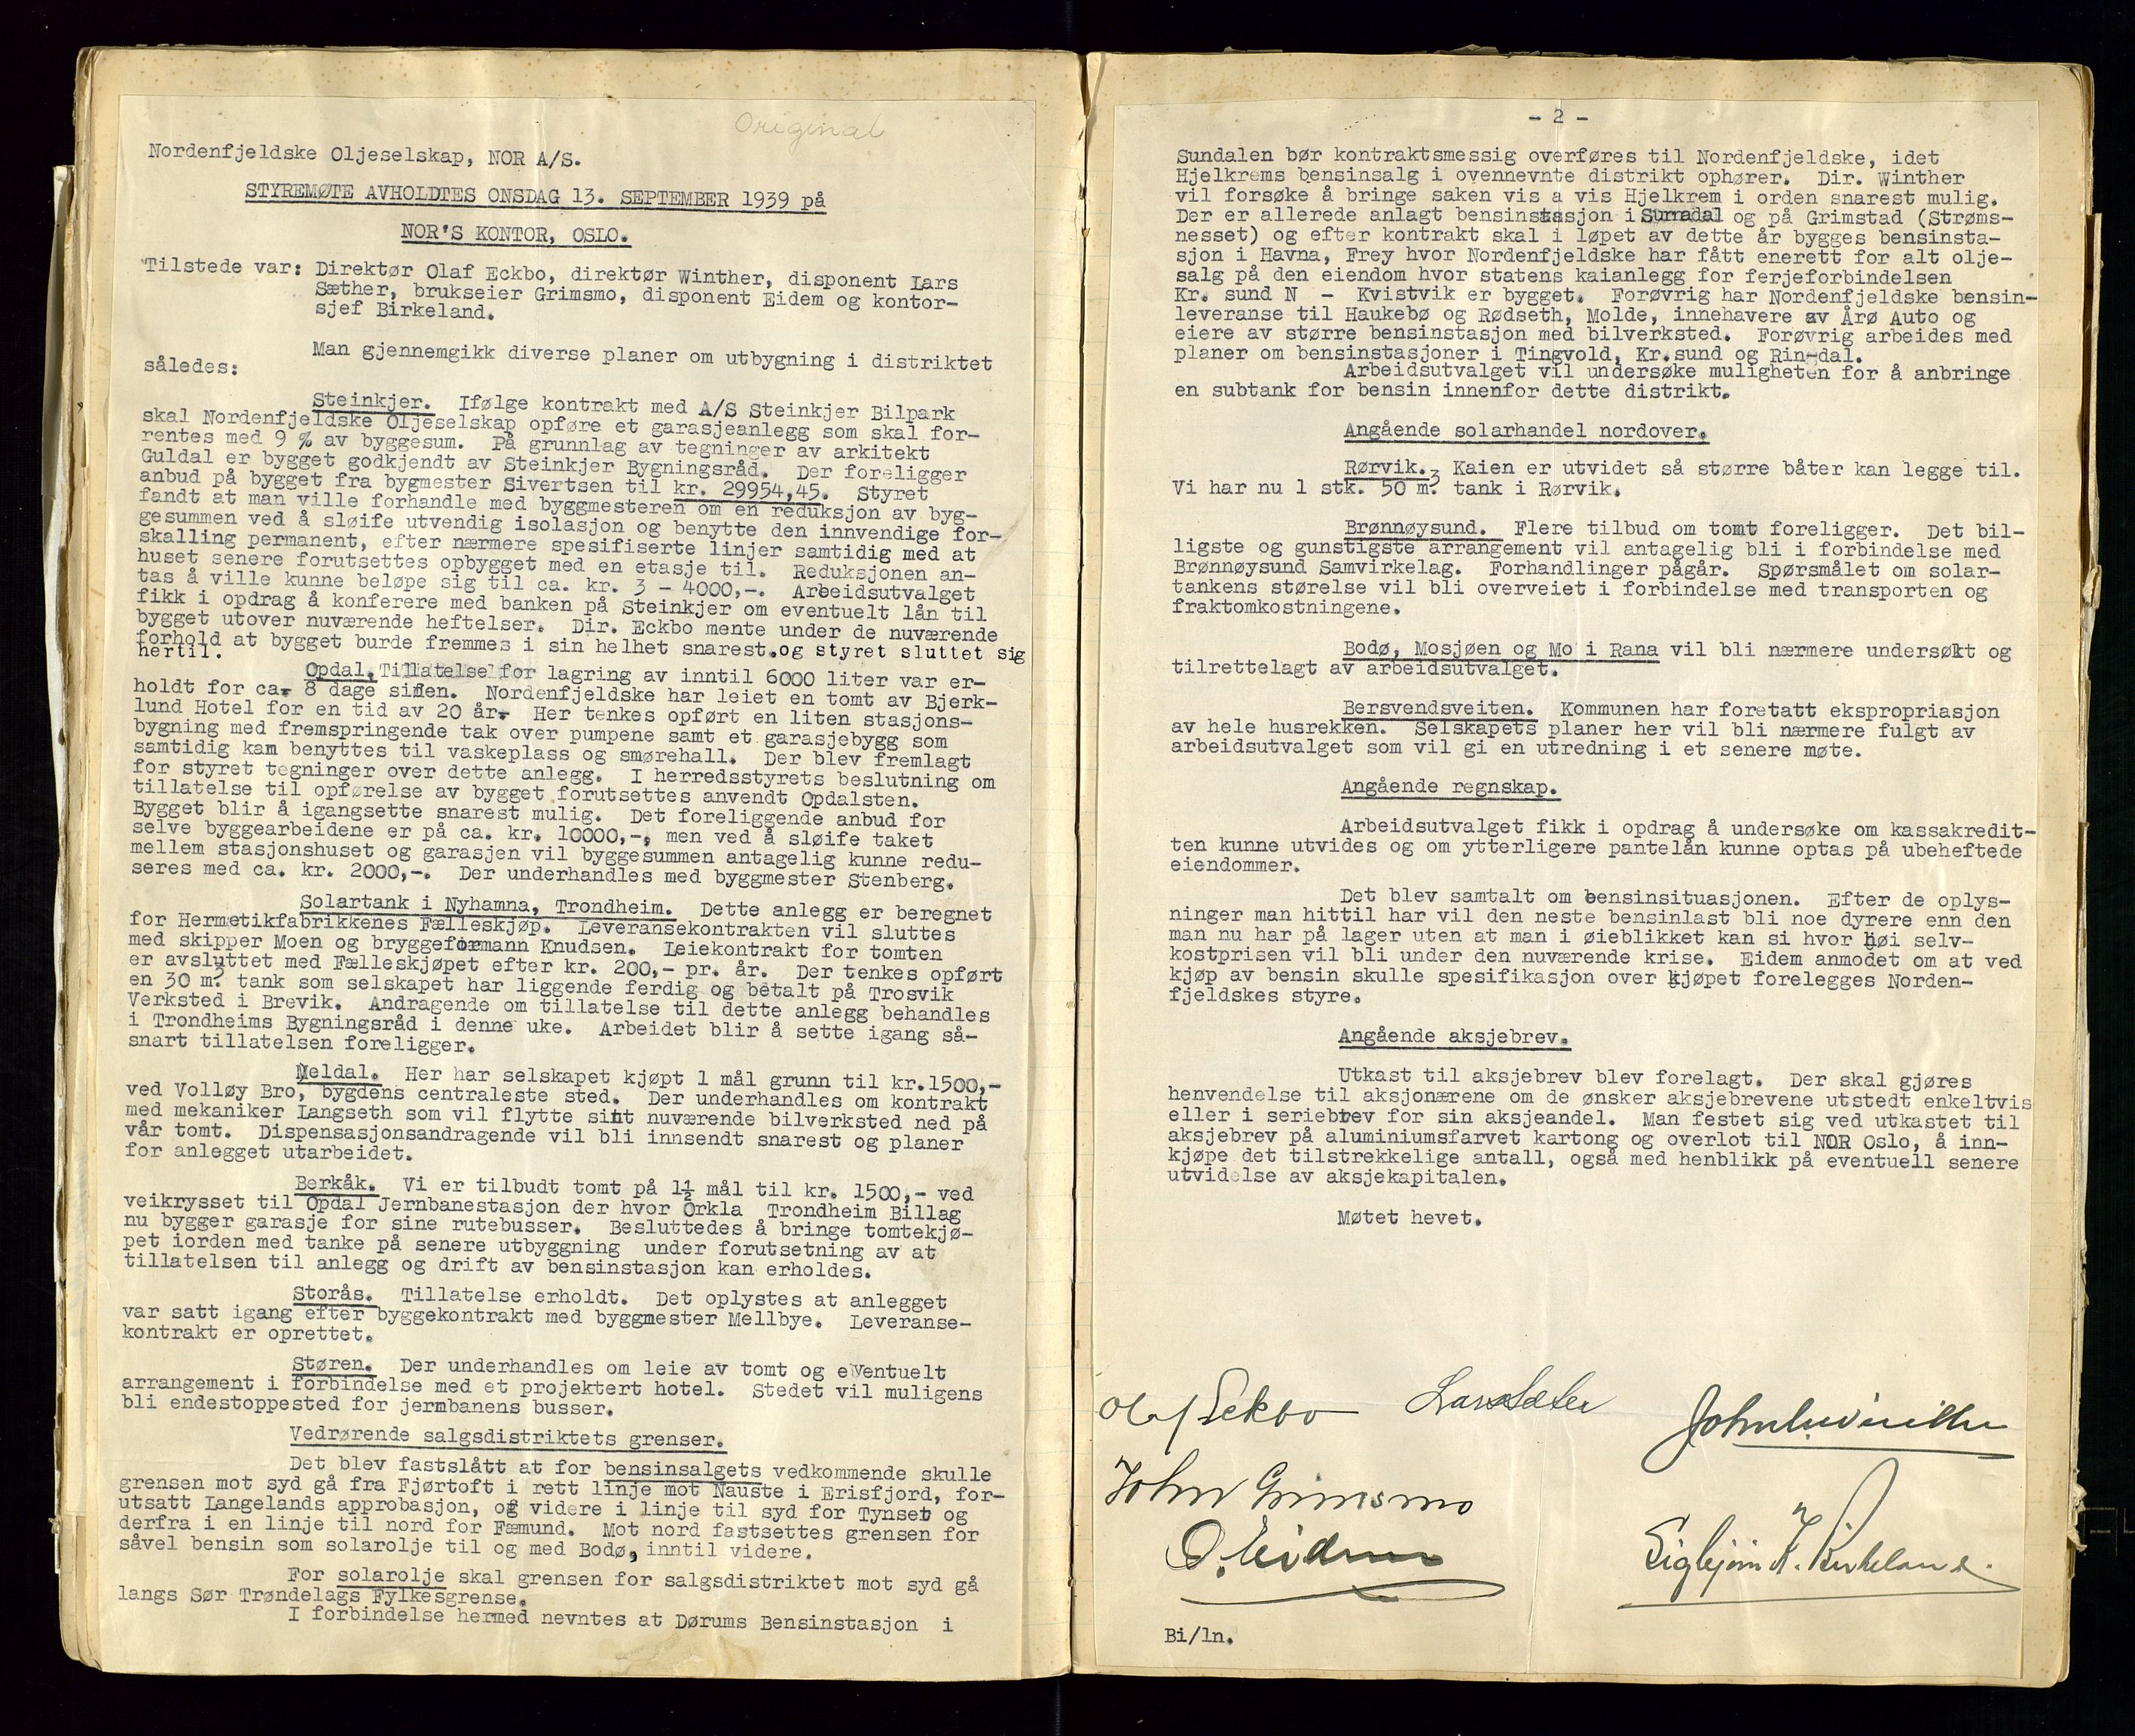 Original
Nordenfjeldske Oljeselskap, NOR A/S.
STYREMØTE AVHOLDTES ONSDAG 13. SEPTEMBER 1939 på
NOR'S KONTOR, OSLO.
Tilstede var: Direktør Olaf Eckbo, direktør Winther, disponent Lars
Sæther, brukseier Grimsmo, disponent Eidem og kontor-
sjef Birkeland.
Man gjennemgikk diverse planer om utbygning i distriktet
således:
Steinkjer. Ifølge kontrakt med A/S Steinkjer Bilpark
skal Nordenfjeldske Oljeselskap opføre et garasjeanlegg som skal for-
rentes med 9 % av byggesum. På grunnlag av tegninger av arkitekt
Guldal er bygget godkjendt av Steinkjer Bygningsråd. Der foreligger
anbud på bygget fra bygmester Sivertsen til kr. 29954,45. Styret
fandt at man ville forhandle med byggmesteren om en reduksjon av byg-
gesummen ved å sløife utvendig isolasjon og benytte den innvendige for-
skalling permanent, efter nærmere spesifiserte linjer samtidig med at
huset senere forutsettes opbygget med en etasje til. Reduksjonen an-
tas å ville kunne beløpe sig til ca. kr. 3 - 4000,-. Arbeidsutvalget
fikk i opdrag å konferere med banken på Steinkjer om eventuelt lån til
bygget utover nuværende heftelser. Dir. Eckbo mente under de nuværende
forhold at bygget burde fremmes i sin helhet snarest.og styret sluttet sig
hertil.
Opdal. Tillatelse for lagring av inntil 6000 liter var er-
holdt for ca. 8 dage siden. Nordenfjeldske har leiet en tomt av Bjerk-
lund Hotel for en tid av 20 år. Her tenkes opført en liten stasjons-
bygning med fremspringende tak over pumpene samt et garasjebygg som
samtidig kan benyttes til vaskeplass og smørehall. Der blev fremlagt
for styret tegninger over dette anlegg. I herredsstyrets beslutning om
tillatelse til opførelse av bygget forutsettes anvendt Opdalsten.
Bygget blir å igangsette snarest mulig. Det foreliggende anbud for
selve byggearbeidene er på ca. kr. 10000,-, men ved å sløife taket
mellem stasjonshuset og garasjen vil byggesummen antagelig kunne redu-
seres med ca. kr. 2000,-. Der underhandles med byggmester Stenberg.
Solartank i Nyhamna, Trondheim. Dette anlegg er beregnet
for Hermetikfabrikkenes Fælleskjøp. Leveransekontrakten vil sluttes
med skipper Moen og bryggeformann Knudsen. Leiekontrakt for tomten
er avsluttet med Fælleskjøpet efter kr. 200,- pr. år. Der tenkes opført
en 30 m³ tank som selskapet har liggende ferdig og betalt på Trosvik
Verksted i Brevik. Andragende om tillatelse til dette anlegg behandles
i Trondheims Bygningsråd i denne uke. Arbeidet blir å sette igang så-
snart tillatelsen foreligger.
Meldal. Her har selskapet kjøpt 1 mål grunn til kr.1500,-
ved Volløy Bro, bygdens centraleste sted. Der underhandles om kontrakt
med mekaniker Langseth som vil flytte sitt nuværende bilverksted ned på
vår tomt. Dispensasjonsandragende vil bli innsendt snarest og planer
for anlegget utarbeidet.
Berkåk. Vi er tilbudt tomt på 1½ mål til kr. 1500,- ved
veikrysset til Opdal Jernbanestasjon der hvor Orkla Trondheim Billag
nu bygger garasje for sine rutebusser. Besluttedes å bringe tomtekjø-
pet iorden med tanke på senere utbyggning under forutsetning av at
tillatelsen til anlegg og drift av bensinstasjon kan erholdes.
Storås. Tillatelse erholdt. Det oplystes at anlegget
var satt igang efter byggekontrakt med byggmester Mellbye. Leveranse-
kontrakt er oprettet.
Støren. Der underhandles om leie av tomt og eventuelt
arrangement i forbindelse med et projektert hotel. Stedet vil muligens
bli endestoppested for jernbanens busser.
Vedrørende salgsdistriktets grenser.
Det blev fastslått at for bensinsalgets vedkommende skulle
grensen mot syd gå fra Fjørtoft i rett linje mot Nauste i Erisfjord, for-
utsatt Langelands approbasjon, og videre i linje til syd for Tynset og
derfra i en linje til nord for Fæmund. Mot nord fastsettes grensen for
såvel bensin som solarolje til og med Bodø, inntil videre.
For solarolje skal grensen for salgsdistriktet mot syd gå
langs Sør Trøndelags Fylkesgrense.
I forbindelse hermed nevntes at Dørums Bensinstasjon i
- 2 -
Sundalen bør kontraktsmessig overføres til Nordenfjeldske, idet
Hjelkrems bensinsalg i ovennevnte distrikt ophører. Dir. Winther
vil forsøke å bringe saken vis a vis Hjelkrem i orden snarest mulig.
Der er allerede anlagt bensinstasjon i Surnadal og på Grimstad (Strøms-
nesset) og efter kontrakt skal i løpet av dette år bygges bensinsta-
sjon i Havna, Frey hvor Nordenfjeldske har fått enerett for alt olje-
salg på den eiendom hvor statens kaianlegg for ferjeforbindelsen
Kr. sund N - Kvistvik er bygget. Forøvrig har Nordenfjeldske bensin-
leveranse til Haukebø og Rødseth, Molde, innehavere av Årø Auto og
eiere av større bensinstasjon med bilverksted. Forøvrig arbeides med
planer om bensinstasjoner i Tingvold, Kr.sund og Rindal.
Arbeidsutvalget vil undersøke muligheten for å anbringe
en subtank for bensin innenfor dette distrikt.
Angående solarhandel nordover.
Rørvik. Kaien er utvidet så større båter kan legge til.
Vi har nu 1 stk. 50 m³ tank i Rørvik.
Brønnøysund. Flere tilbud om tomt foreligger. Det bil-
ligste og gunstigste arrangement vil antagelig bli i forbindelse med
Brønnøysund Samvirkelag. Forhandlinger pågår. Spørsmålet om solar-
tankens størelse vil bli overveiet i forbindelse med transporten og
fraktomkostningene.
Bodø, Mosjøen og Mo i Rana vil bli nærmere undersøkt og
tilrettelagt av arbeidsutvalget.
Bersvendsveiten. Kommunen har foretatt ekspropriasjon
av hele husrekken. Selskapets planer her vil bli nærmere fulgt av
arbeidsutvalget som vil gi en utredning i et senere møte.
Angående regnskap.
Arbeidsutvalget fikk i opdrag å undersøke om kassakredit-
ten kunne utvides og om ytterligere pantelån kunne optas på ubeheftede
eiendommer.
Det blev samtalt om bensinsituasjonen. Efter de oplys-
ninger man hittil har vil den neste bensinlast bli noe dyrere enn den
man nu har på lager uten at man i øieblikket kan si hvor høi selv-
kostprisen vil bli under den nuværende krise. Eidem anmodet om at ved
kjøp av bensin skulle spesifikasjon over kjøpet forelegges Norden-
fjeldskes styre.
Angående aksjebrev.
Utkast til aksjebrev blev forelagt. Der skal gjøres
henvendelse til aksjonærene om de ønsker aksjebrevene utstedt enkeltvis
eller i seriebrev for sin aksjeandel. Man festet sig ved utkastet til
aksjebrev på aluminiumsfarvet kartong og overlot til NOR Oslo, å inn-
kjøpe det tilstrekkelige antall, også med henblikk på eventuell senere
utvidelse av aksjekapitalen.
Møtet hevet.
Olaf Eckbo Lars Sæter
John Grimsmo
O. Eidem
Sigbjørn K. Birkeland.
Bi/ln.